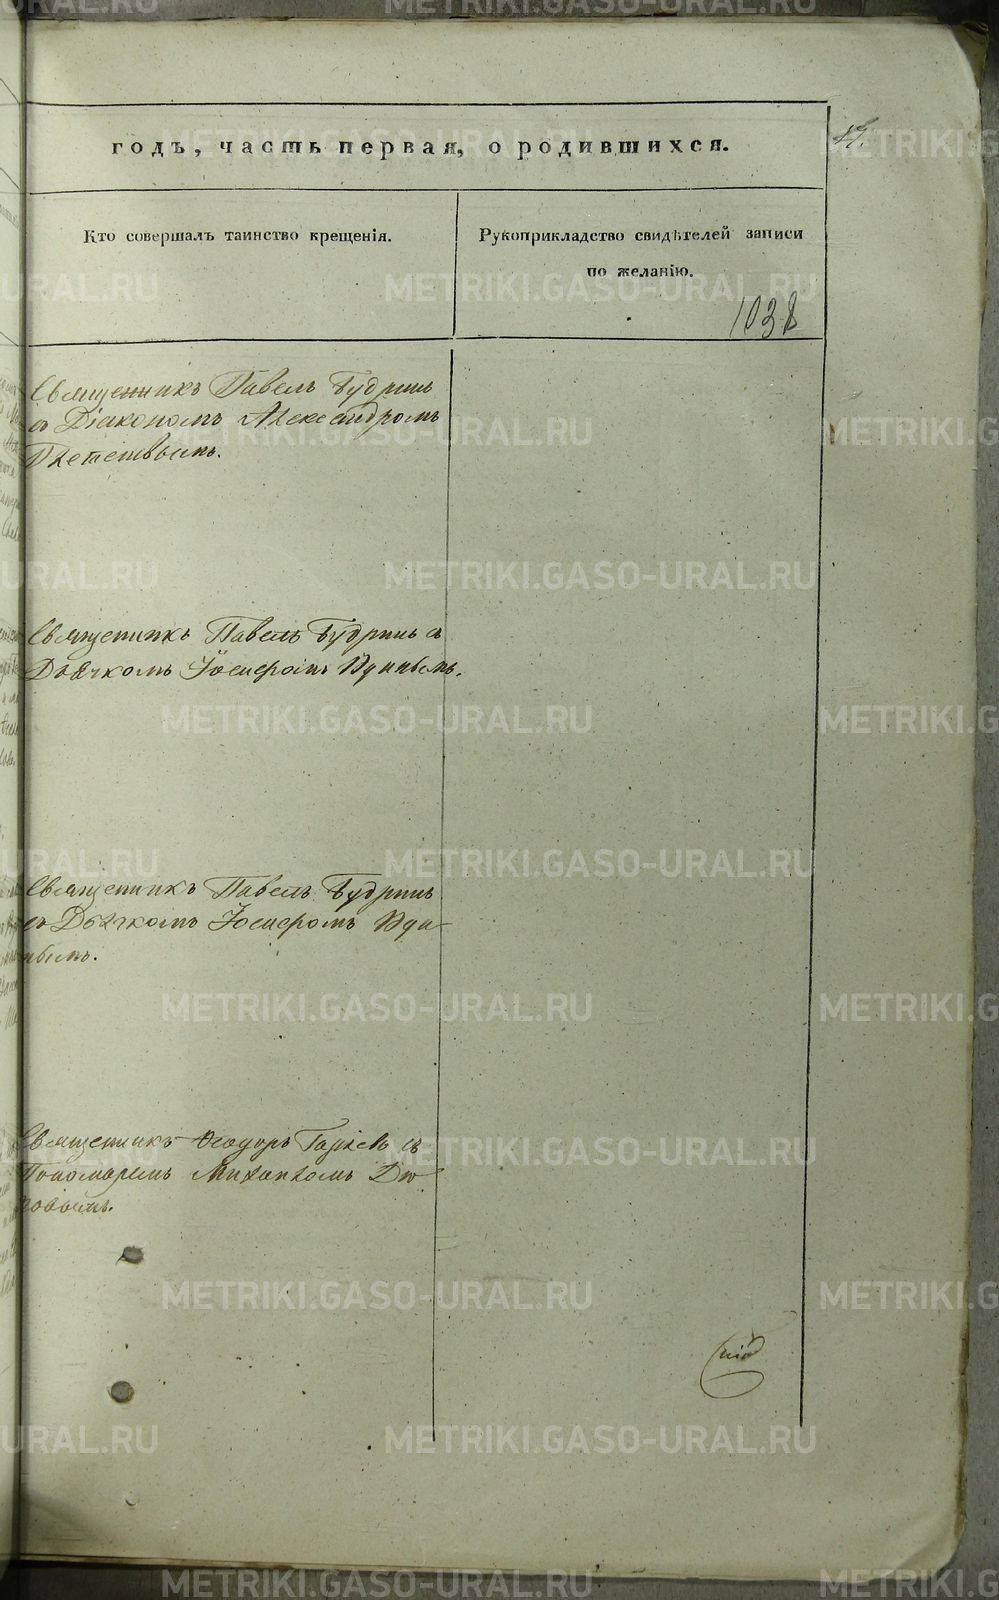 годъ, часть первая, о родившихся.
Кто совершалъ таинство крещенія.
Рукоприкладство свидѣтелей записи
по желанію.
1038
Священникъ Павелъ Будринъ
съ Діакономъ Александромъ
Священникъ Павелъ Будринъ съ
Дьячкомъ Іосифомъ
Священникъ Павелъ Будринъ
съ Дьячкомъ Іосифомъ
Священникъ Ѳеодоръ съ
Пономаремъ Михаиломъ
METRIKI.GASO-URAL.RU